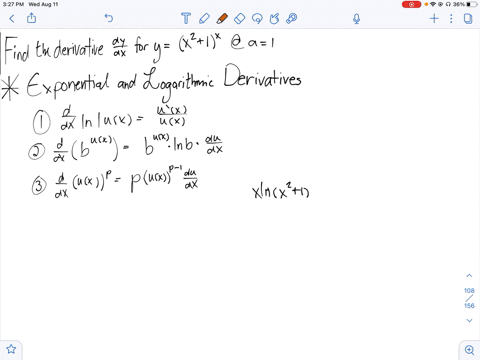 3:27 PM Wed Aug 11
36%
Find the derivative dy/dx for y = (x²+1)ˣ @ a=1
* Exponential and Logarithmic Derivatives
① d/dx ln |u(x) = u'(x)/u(x)
② d/dx (b^u(x)) = b^u(x) · ln b · du/dx
③ d/dx (u(x))^p = p(u(x))^p-1 du/dx
x ln(x²+1)
108
/
156